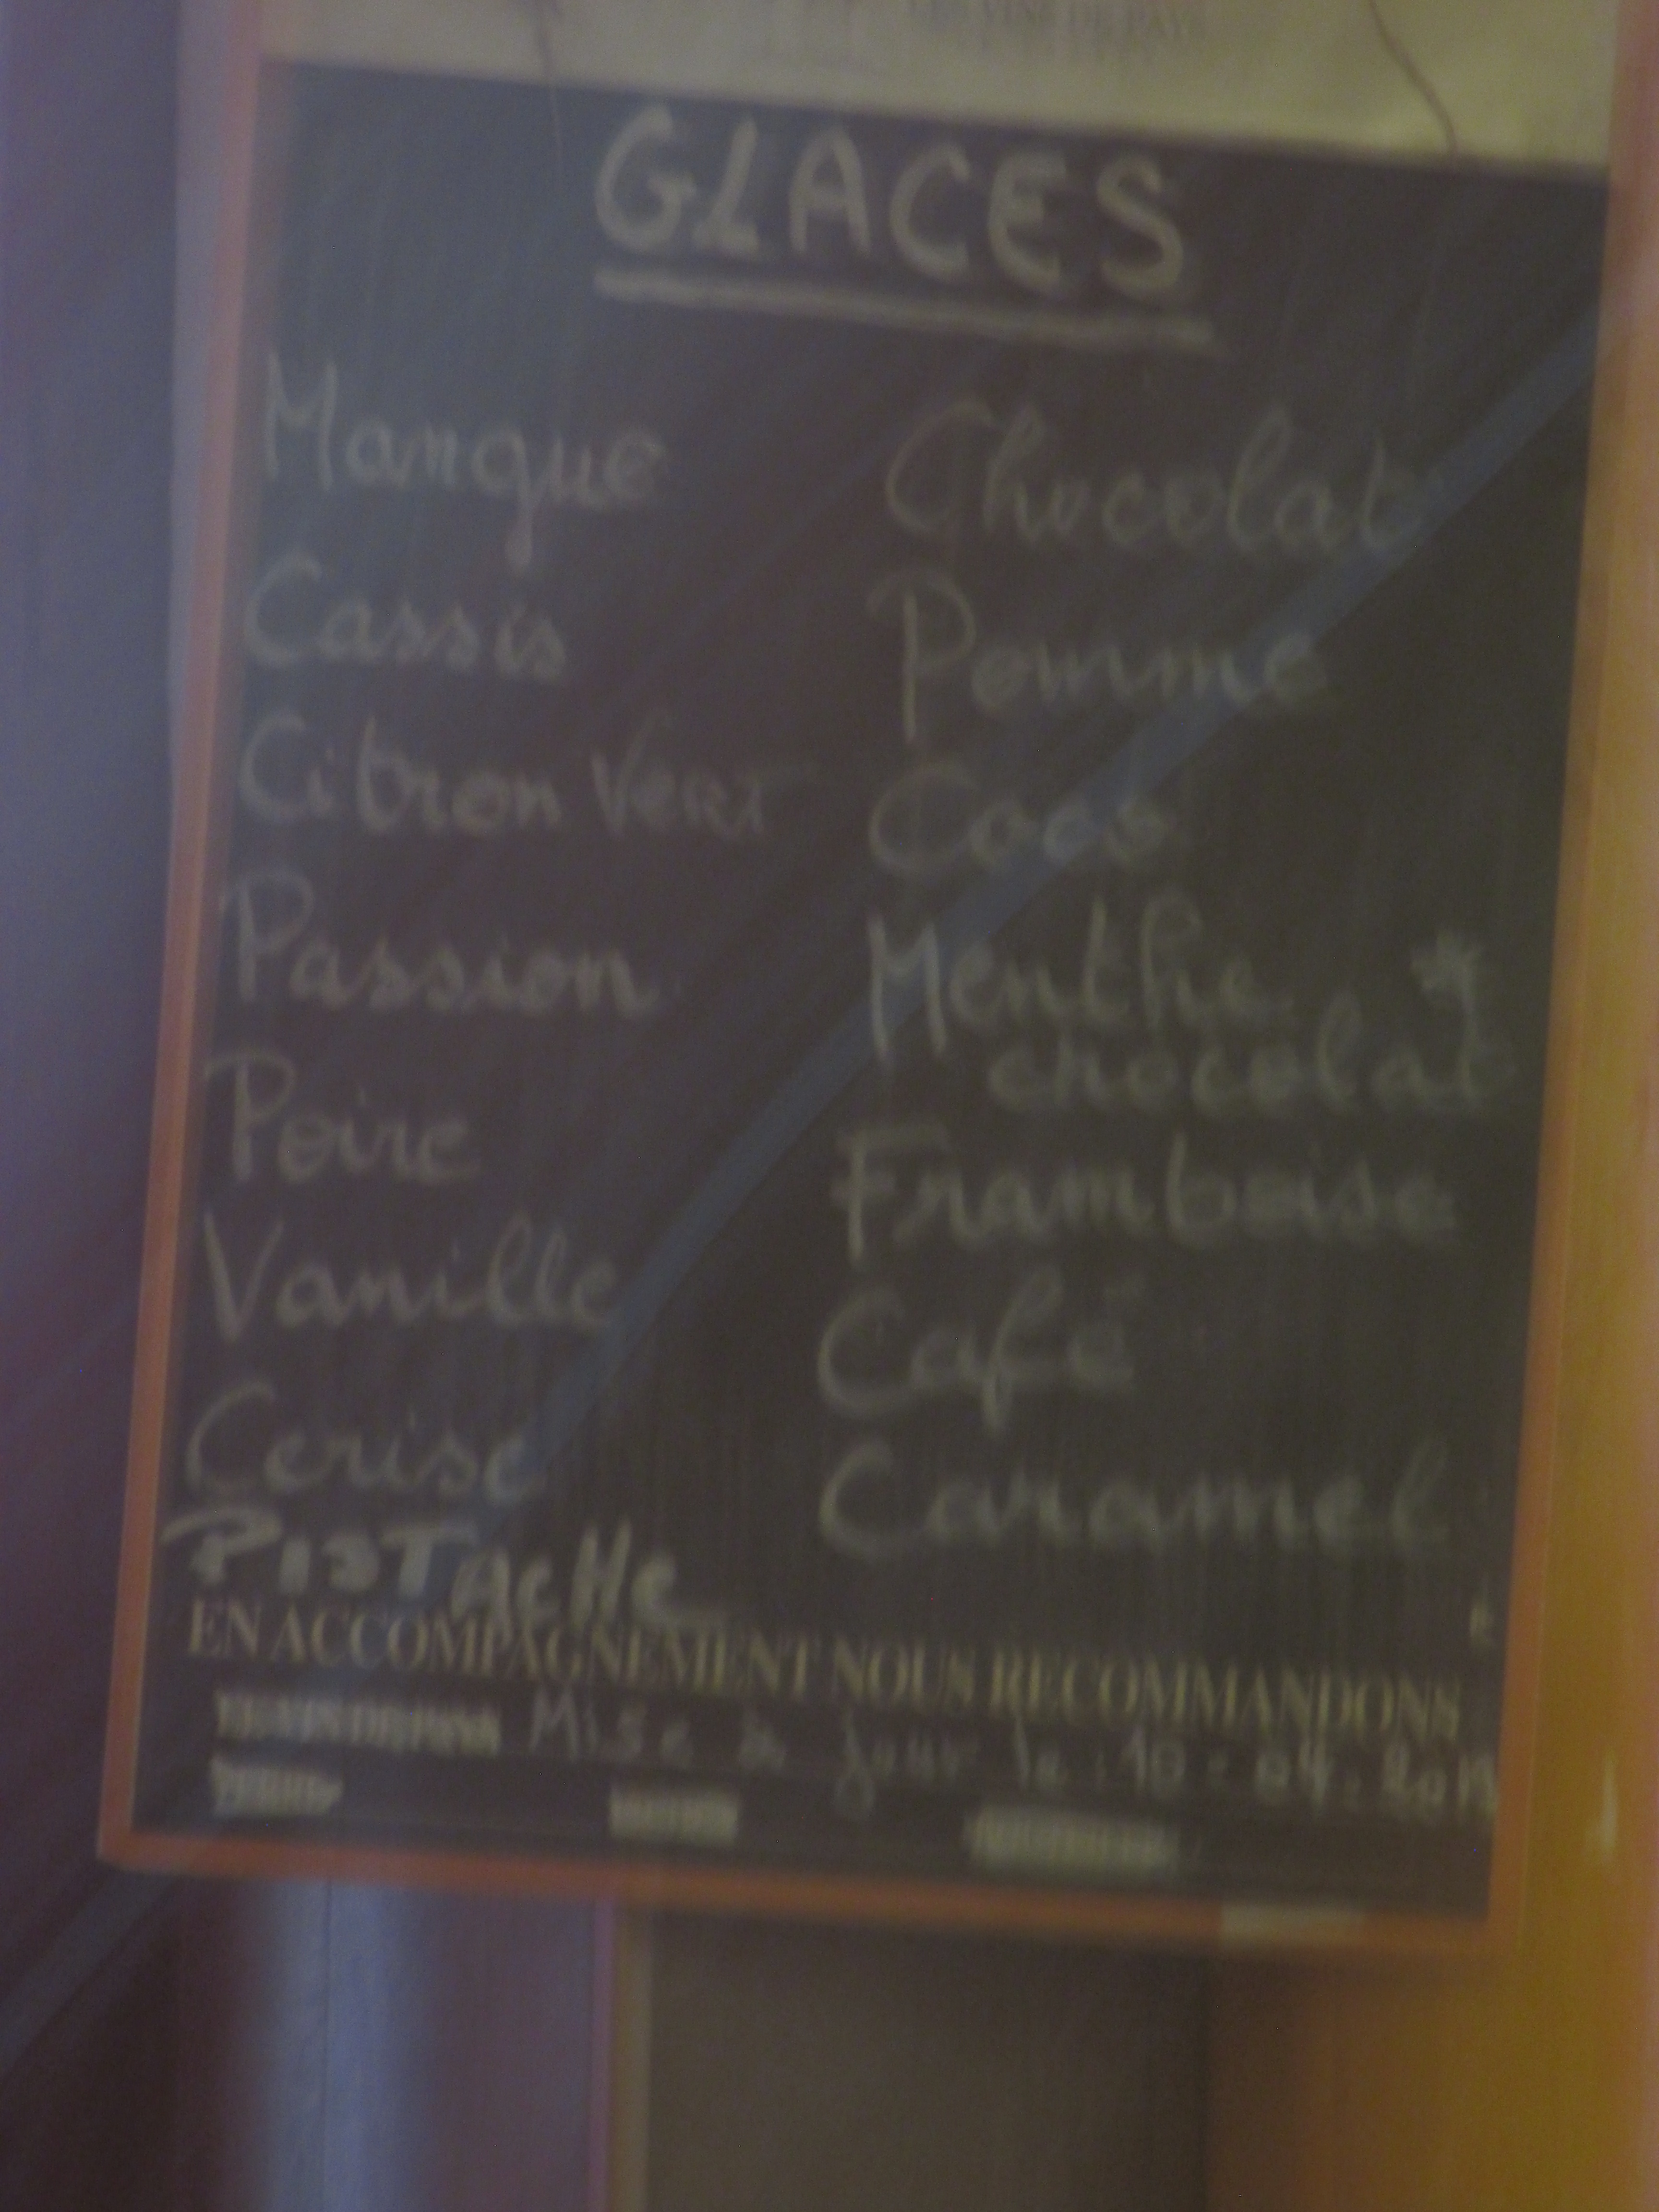 LES VINS DE PAYS
GLACES
Mangue
Cassis
Citron Vert
Passion
Poire
Vanille
Cerise
PISTACHE
Chocolat
Pomme
Coco
Menthe *
chocolat
Framboise
Café
Caramel
EN ACCOMPAGNEMENT NOUS RECOMMANDONS
Mise à jour le : 10 - 04 -